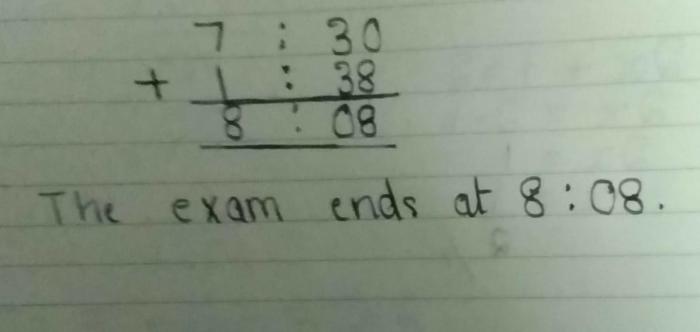 7 : 30
+ 1 : 38
8 : 08
The exam ends at 8 : 08.